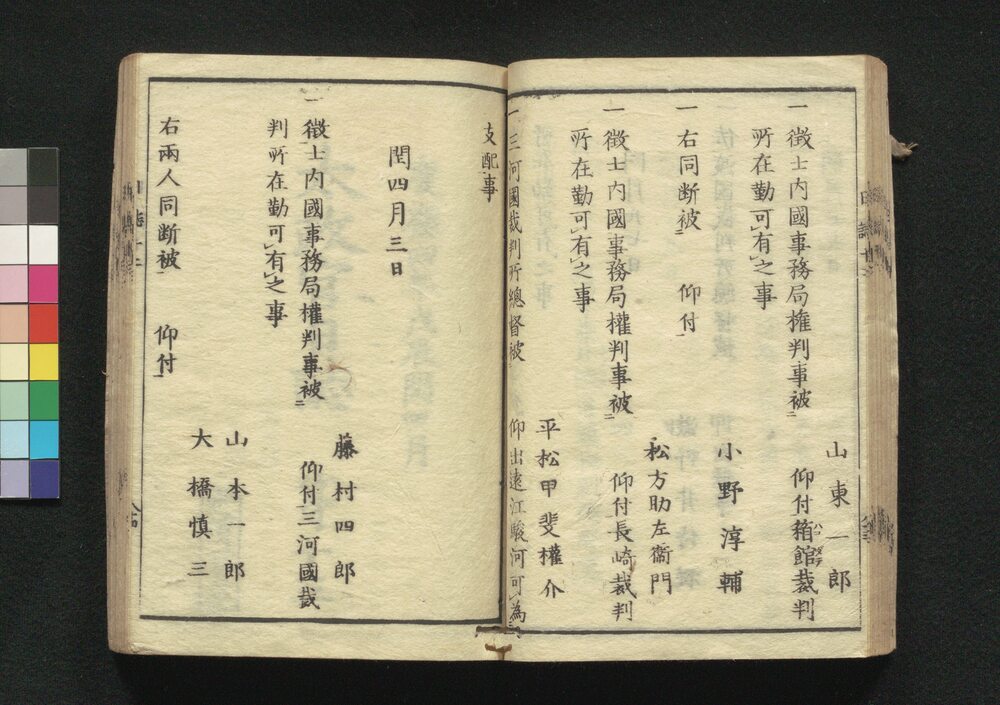 山東一郎
一徴士内國事務局権判事被㆓　仰付箱館裁判
ハコダテ
所在勤可㆑有㆑之事
小野淳輔
一右同断被㆓　仰付㆒
松方助左衞門
一徴士内國事務局權判事被㆓　仰付長崎裁判
所在勤可㆑有㆑之事
平松甲斐權介
一三河國裁判所總督被㆓　仰出遠江駿河可㆑為㆓
支配㆒事
閏四月三日
藤村四郎
一徴士内國事務局權判事被㆓　仰付三河國裁
判所在勤可㆑有㆑之事
山本一郎
大橋慎三
右兩人同断被㆓　仰付㆒